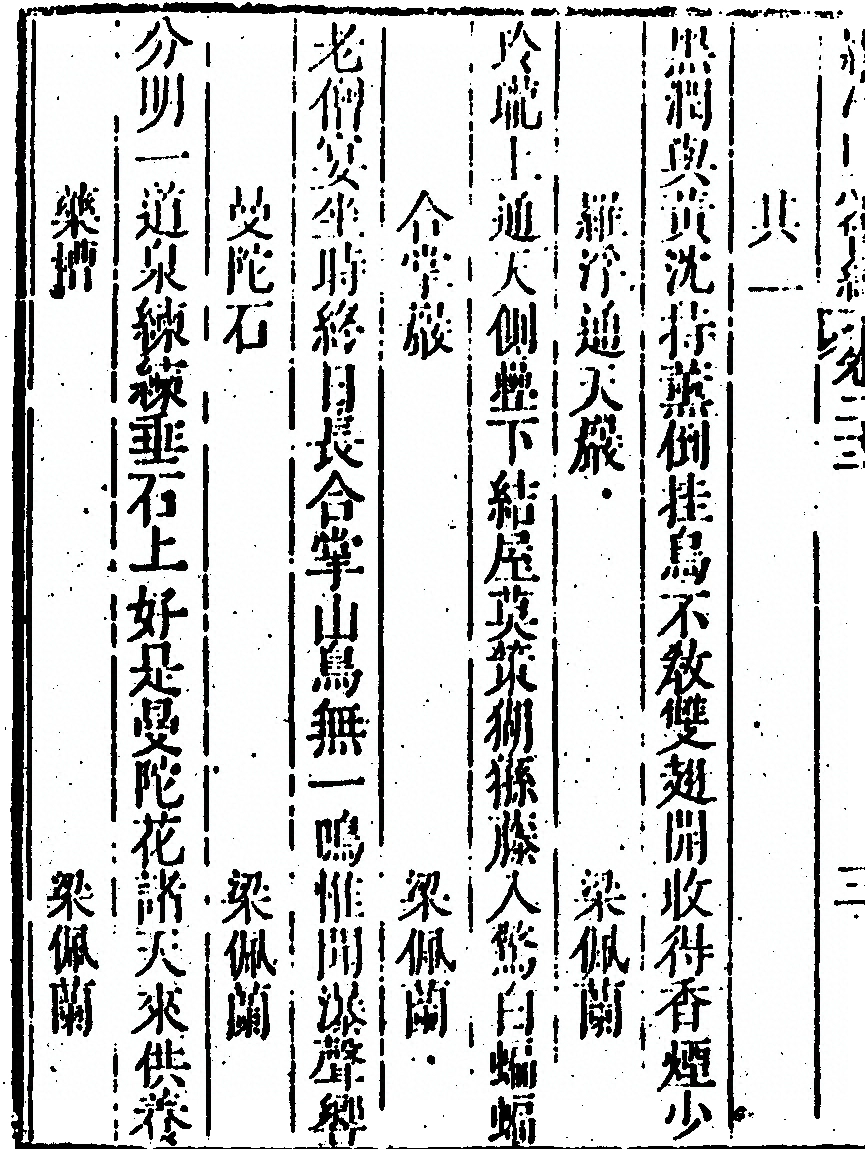 共一
黑潤與黃沈持薰倒挂鳥不教雙翅開收得香煙少
羅浮通天巖 梁佩蘭
玲瓏上通天側疊下結屋莫策猢猻藤入驚白蝙蝠
合掌巖 梁佩蘭
老僧安坐時終日長合掌山鳥無一鳴惟聞瀑聲響
曼陀石 梁佩蘭
分明一道泉練練垂石上好是曼陀花諸天來供養
藥槽 梁佩蘭